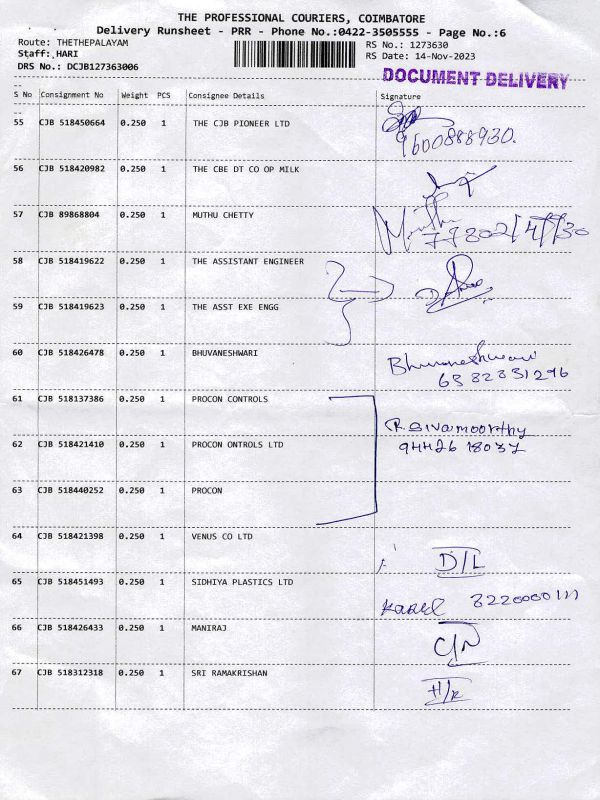 THE PROFESSIONAL COURIERS, COIMBATORE
Delivery Runsheet - PRR - Phone No.:0422-3505555 - Page No.:6
Route: THETHEPALAYAM
Staff:,HARI
DRS No.: DCJB127363006
RS No.: 1273630
RS Date: 14-Nov-2023
DOCUMENT DELIVERY
S No Consignment No Weight PCS Consignee Details Signature
55 CJB 518450664 0.250 1 THE CJB PIONEER LTD
9600888930.
56 CJB 518420982 0.250 1 THE CBE DT CO OP MILK
57 CJB 89868804 0.250 1 MUTHU CHETTY
58 CJB 518419622 0.250 1 THE ASSISTANT ENGINEER
59 CJB 518419623 0.250 1 THE ASST EXE ENGG
60 CJB 518426478 0.250 1 BHUVANESHWARI Bhuvaneshwari
6382331296
61 CJB 518137386 0.250 1 PROCON CONTROLS R.Sivamoorthy
62 CJB 518421410 0.250 1 PROCON ONTROLS LTD 94426 18037
63 CJB 518440252 0.250 1 PROCON
64 CJB 518421398 0.250 1 VENUS CO LTD D/L
65 CJB 518451493 0.250 1 SIDHIYA PLASTICS LTD
66 CJB 518426433 0.250 1 MANIRAJ C/N
67 CJB 518312318 0.250 1 SRI RAMAKRISHAN H/R